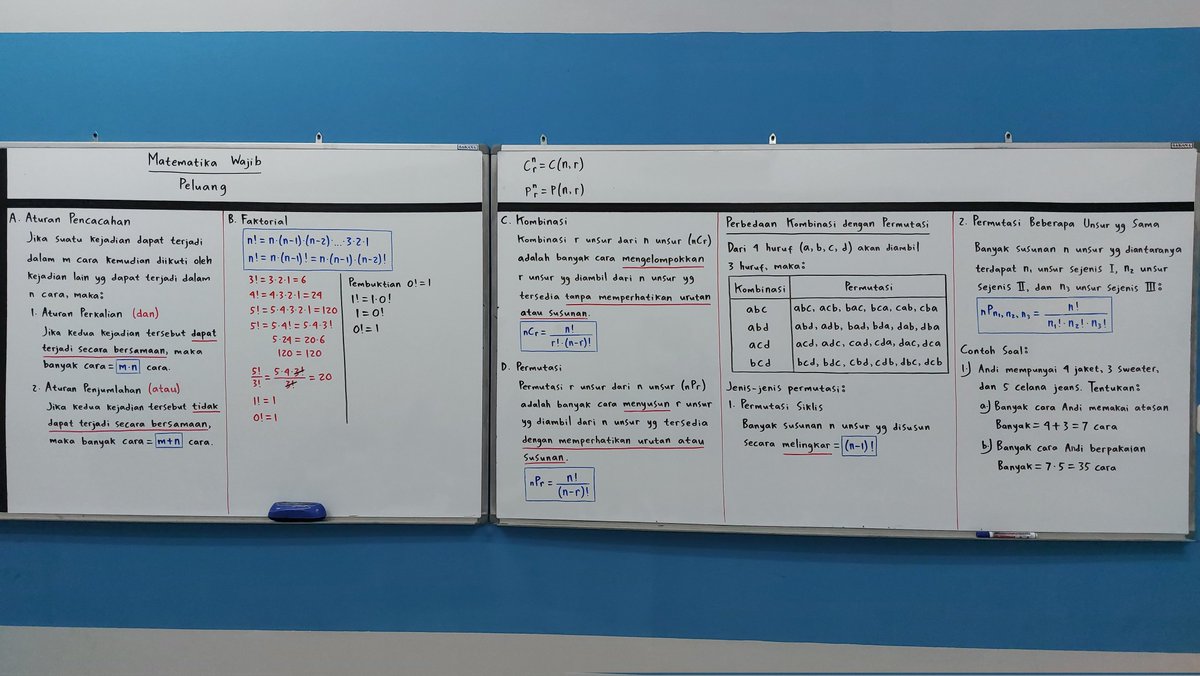 Matematika Wajib
Peluang
A. Aturan Pencacahan
Jika suatu kejadian dapat terjadi
dalam m cara kemudian diikuti oleh
kejadian lain yg dapat terjadi dalam
n cara, maka:
1. Aturan Perkalian (dan)
Jika kedua kejadian tersebut dapat
terjadi secara bersamaan, maka
banyak cara = m·n cara.
2. Aturan Penjumlahan (atau)
Jika kedua kejadian tersebut tidak
dapat terjadi secara bersamaan,
maka banyak cara = m+n cara.
B. Faktorial
n! = n·(n-1)·(n-2)·...·3·2·1
n! = n·(n-1)! = n·(n-1)·(n-2)!
3! = 3·2·1 = 6
4! = 4·3·2·1 = 24
5! = 5·4·3·2·1 = 120
5! = 5·4! = 5·4·3!
5·24 = 20·6
120 = 120
5!/3! = 5·4·3!/3! = 20
1! = 1
0! = 1
Pembuktian 0! = 1
1! = 1·0!
1 = 0!
0! = 1
C^n_r = C(n,r)
P^n_r = P(n,r)
C. Kombinasi
Kombinasi r unsur dari n unsur (nCr)
adalah banyak cara mengelompokkan
r unsur yg diambil dari n unsur yg
tersedia tanpa memperhatikan urutan
atau susunan.
nCr = n!/r!·(n-r)!
D. Permutasi
Permutasi r unsur dari n unsur (nPr)
adalah banyak cara menyusun r unsur
yg diambil dari n unsur yg tersedia
dengan memperhatikan urutan atau
susunan.
nPr = n!/(n-r)!
Perbedaan Kombinasi dengan Permutasi
Dari 4 huruf (a, b, c, d) akan diambil
3 huruf, maka:
Kombinasi Permutasi
abc abc, acb, bac, bca, cab, cba
abd abd, adb, bad, bda, dab, dba
acd acd, adc, cad, cda, dac, dca
bcd bcd, bdc, cbd, cdb, dbc, dcb
Jenis-jenis permutasi:
1. Permutasi Siklis
Banyak susunan n unsur yg disusun
secara melingkar = (n-1)!
2. Permutasi Beberapa Unsur yg Sama
Banyak susunan n unsur yg diantaranya
terdapat n₁ unsur sejenis I, n₂ unsur
sejenis II, dan n₃ unsur sejenis III:
nPn₁,n₂,n₃ = n!/n₁!·n₂!·n₃!
Contoh Soal:
1.) Andi mempunyai 4 jaket, 3 sweater,
dan 5 celana jeans. Tentukan:
a) Banyak cara Andi memakai atasan
Banyak = 4+3 = 7 cara
b) Banyak cara Andi berpakaian
Banyak = 7·5 = 35 cara